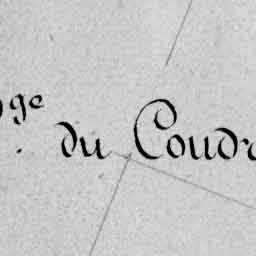 ge du Coudr